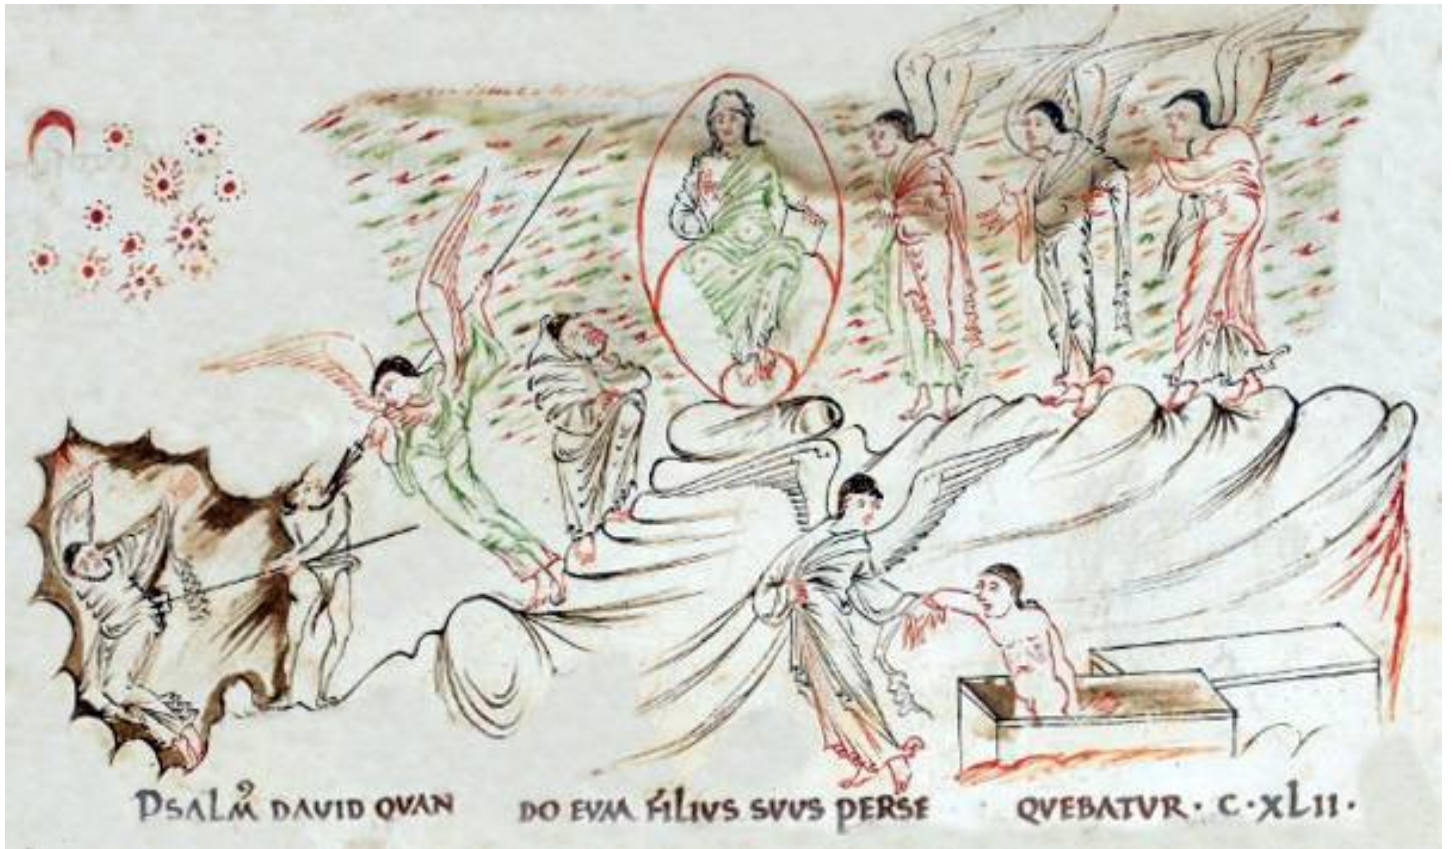 PSALMꝰ DAVID QVAN DO EVM FILIUS SVVS PERSE QVEBATVR · C · XLII ·